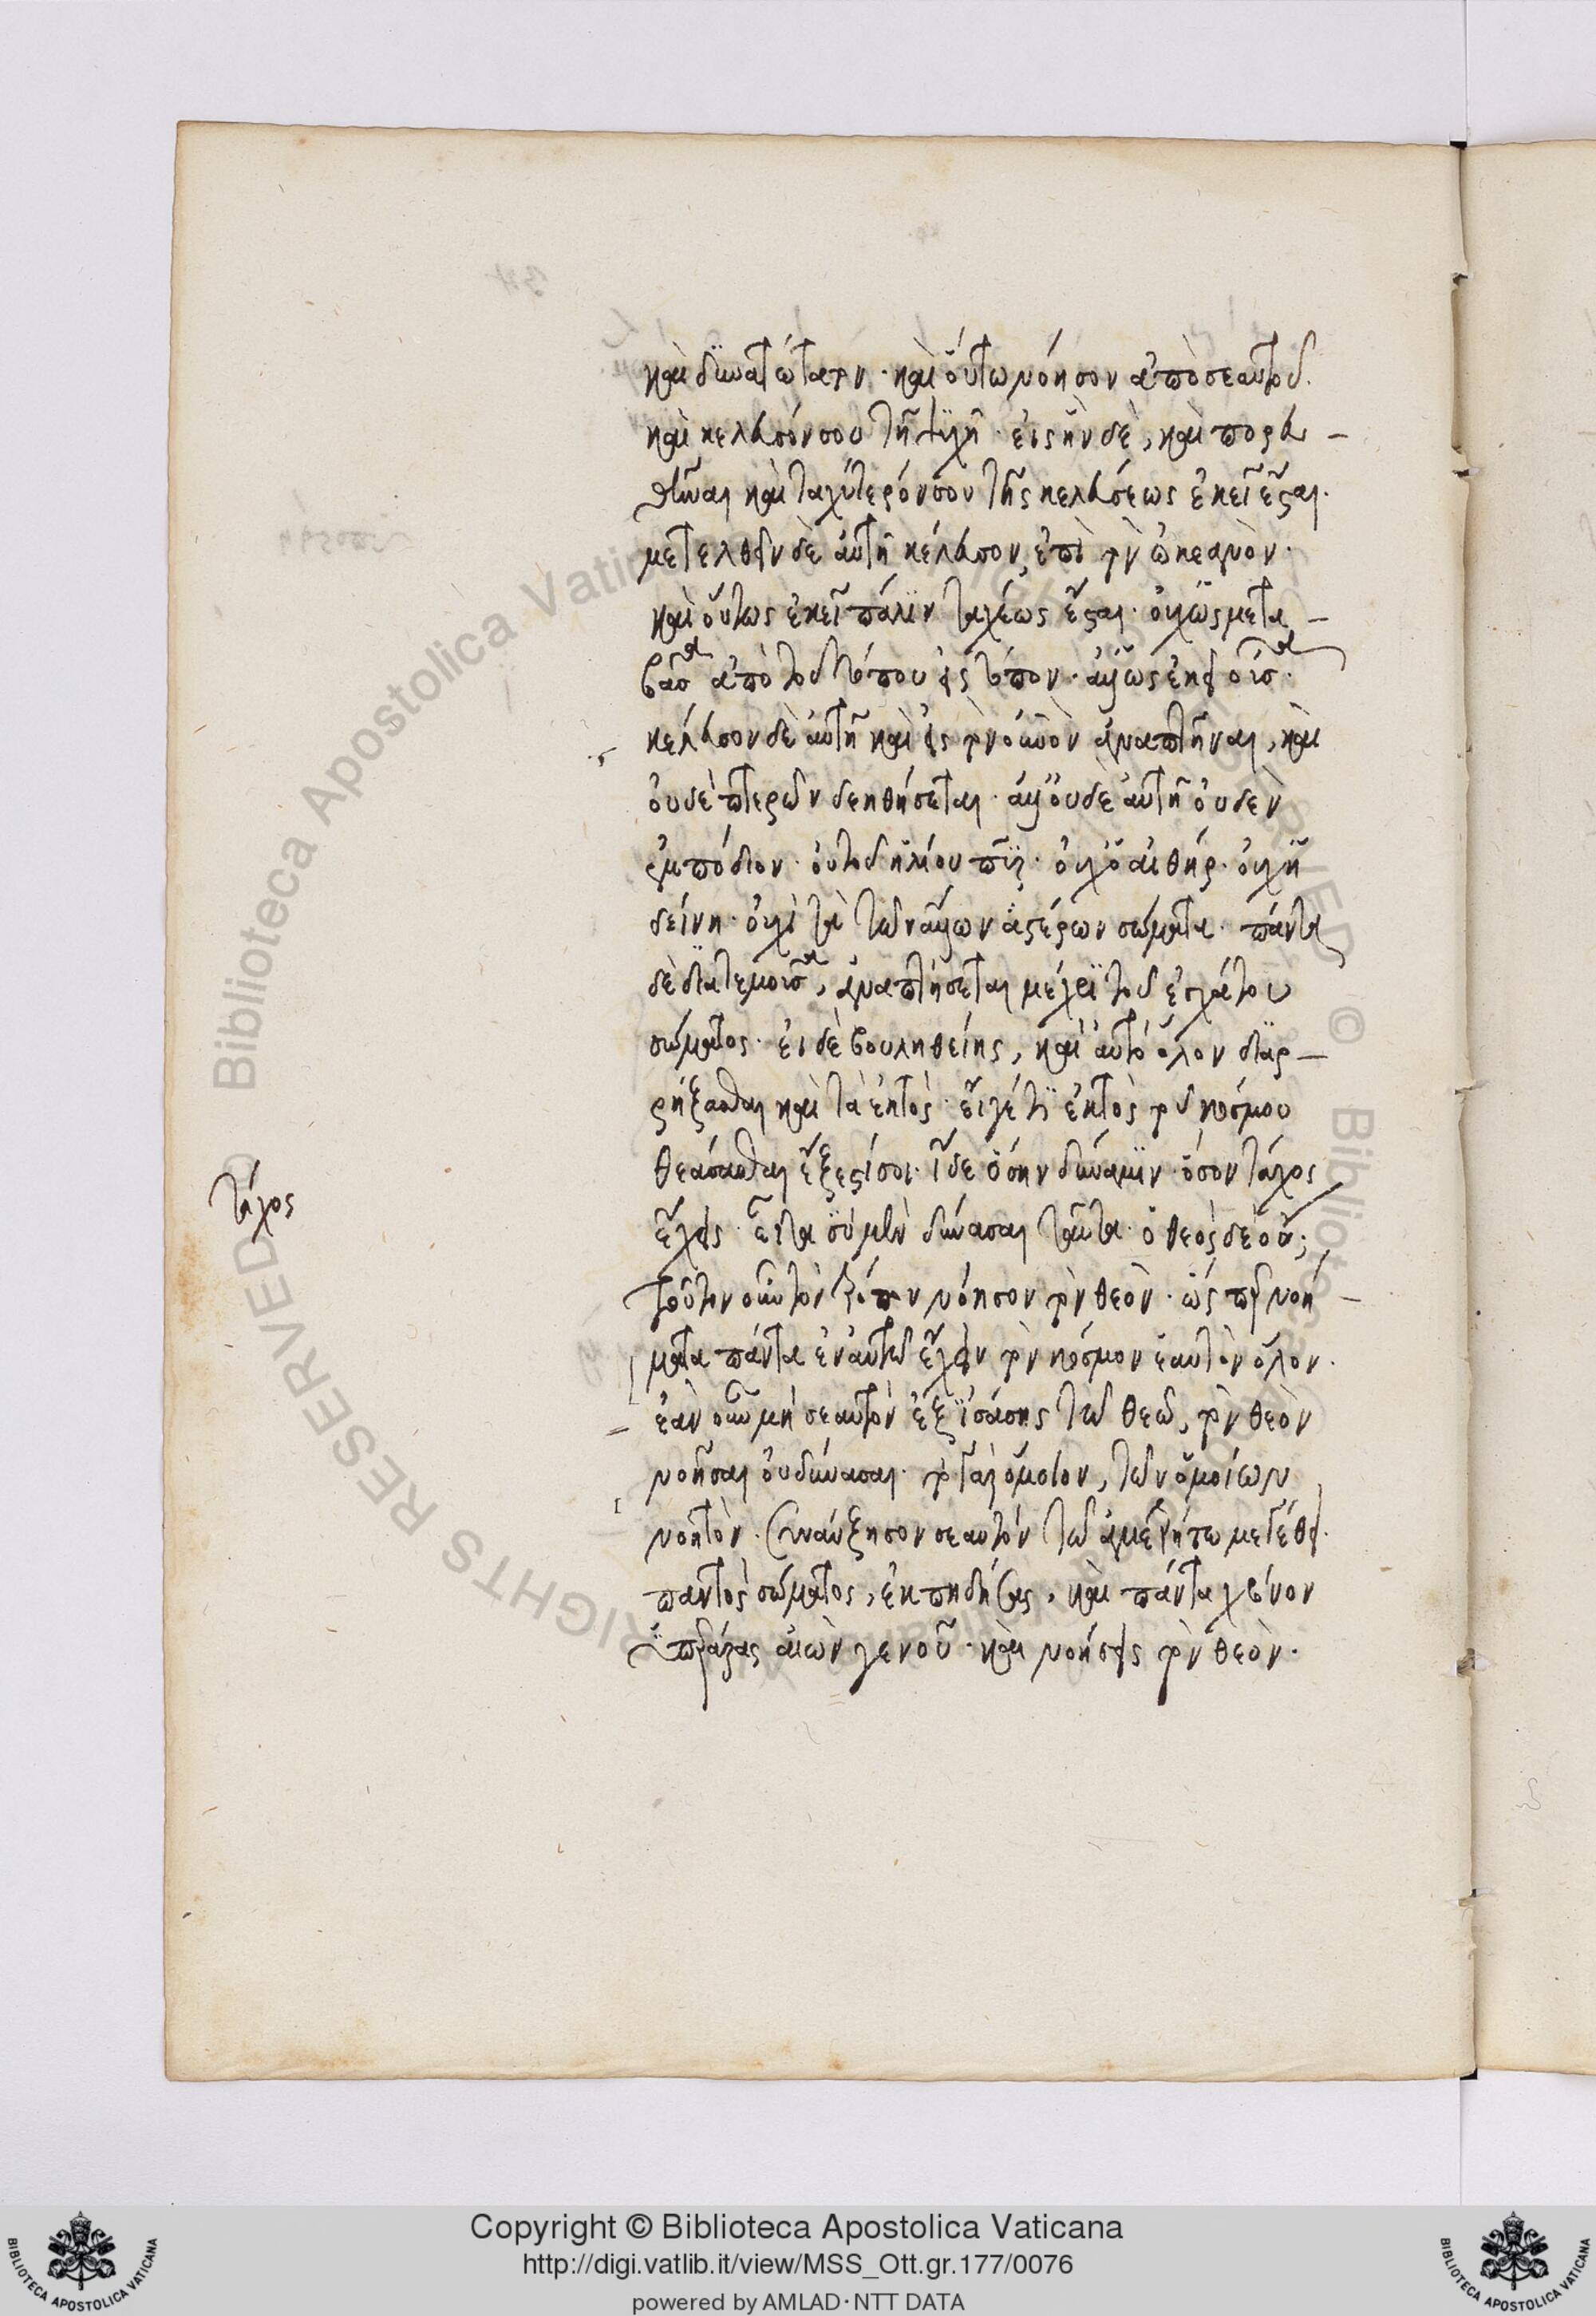 καὶ δυνατώτατον· καὶ οὕτω νόησον ἀπὸ σεαυτοῦ.
καὶ κέλευσόν σου τῆ ψυχῆ· εἰς ἣν δὲ, καὶ πορευ-
θῆναι καὶ ταχύτερόν σου τῆς κελεύσεως ἐκεῖ ἔσται.
μετελθεῖν δὲ αὐτῆ κέλευσον, ἐπὶ τὸν ὠκεανὸν·
καὶ οὕτως ἐκεῖ πάλιν ταχέως ἔσται· οὐχ ὡς μετα-
βᾶσα ἀπὸ τοῦ τόπου εἰς τόπον· ἀλλ' ὡς ἐκεῖ οὖσα.
κέλευσον δὲ αὐτῆ καὶ εἰς τὸν οὐρανὸν ἀναπτῆναι, καὶ
οὐδὲ πτερῶν δεηθήσεται· ἀλλ' οὐδὲ αὐτῆ οὐδὲν
ἐμπόδιον· οὐ τοῦ ἡλίου πῦρ· οὐχ ὁ αἰθήρ· οὐχ ἡ
δείνη· οὐχὶ τὰ τῶν ἄλλων ἀστέρων σώματα· πάντα
δὲ διατεμοῦσα, ἀναπτήσεται μέχρι τοῦ ἐσχάτου
σώματος· εἰ δὲ βουληθείης, καὶ αὐτὸ ὅλον διαρ-
ρήξασθαι καὶ τὰ ἐκτὸς· εἴ γέ τι ἐκτὸς τοῦ κόσμου
θεάσασθαι ἔξεστί σοι· ἴδε ὅσην δύναμιν· ὅσον τάχος
τάχος
ἔχεις· εἶτα σὺ μὲν δύνασαι ταῦτα· ὁ θεὸς δὲ οὔ;
τοῦτον οὖν τὸν τρόπον νόησον τὸν θεὸν· ὥσπερ νοή-
ματα πάντα ἐν αὐτῶ ἔχειν τὸν κόσμον ἑαυτὸν ὅλον.
ἐὰν οὖν μὴ σεαυτὸν ἐξισάσης τῶ θεῶ, τὸν θεὸν
νοῆσαι οὐ δύνασαι· τὸ γὰρ ὅμοιον, τῶν ὁμοίων
νοητὸν· συναύξησον σεαυτὸν τῶ ἀμετρήτω μεγέθει.
παντὸς σώματος, ἐκπηδήσας, καὶ πάντα χρόνον
ὑπεράρας αἰὼν γενοῦ· καὶ νοήσεις τὸν θεὸν.
Copyright © Biblioteca Apostolica Vaticana
http://digi.vatlib.it/view/MSS_Ott.gr.177/0076
powered by AMLAD·NTT DATA